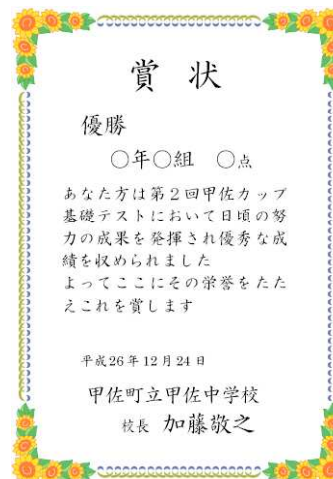 賞 状
優勝
○年○組 ○点
あなた方は第２回甲佐カップ
基礎テストにおいて日頃の努
力の成果を発揮され優秀な成
績を収められました
よってここにその栄誉をたた
えこれを賞します
平成26年12月24日
甲佐町立甲佐中学校
校長 加藤敬之